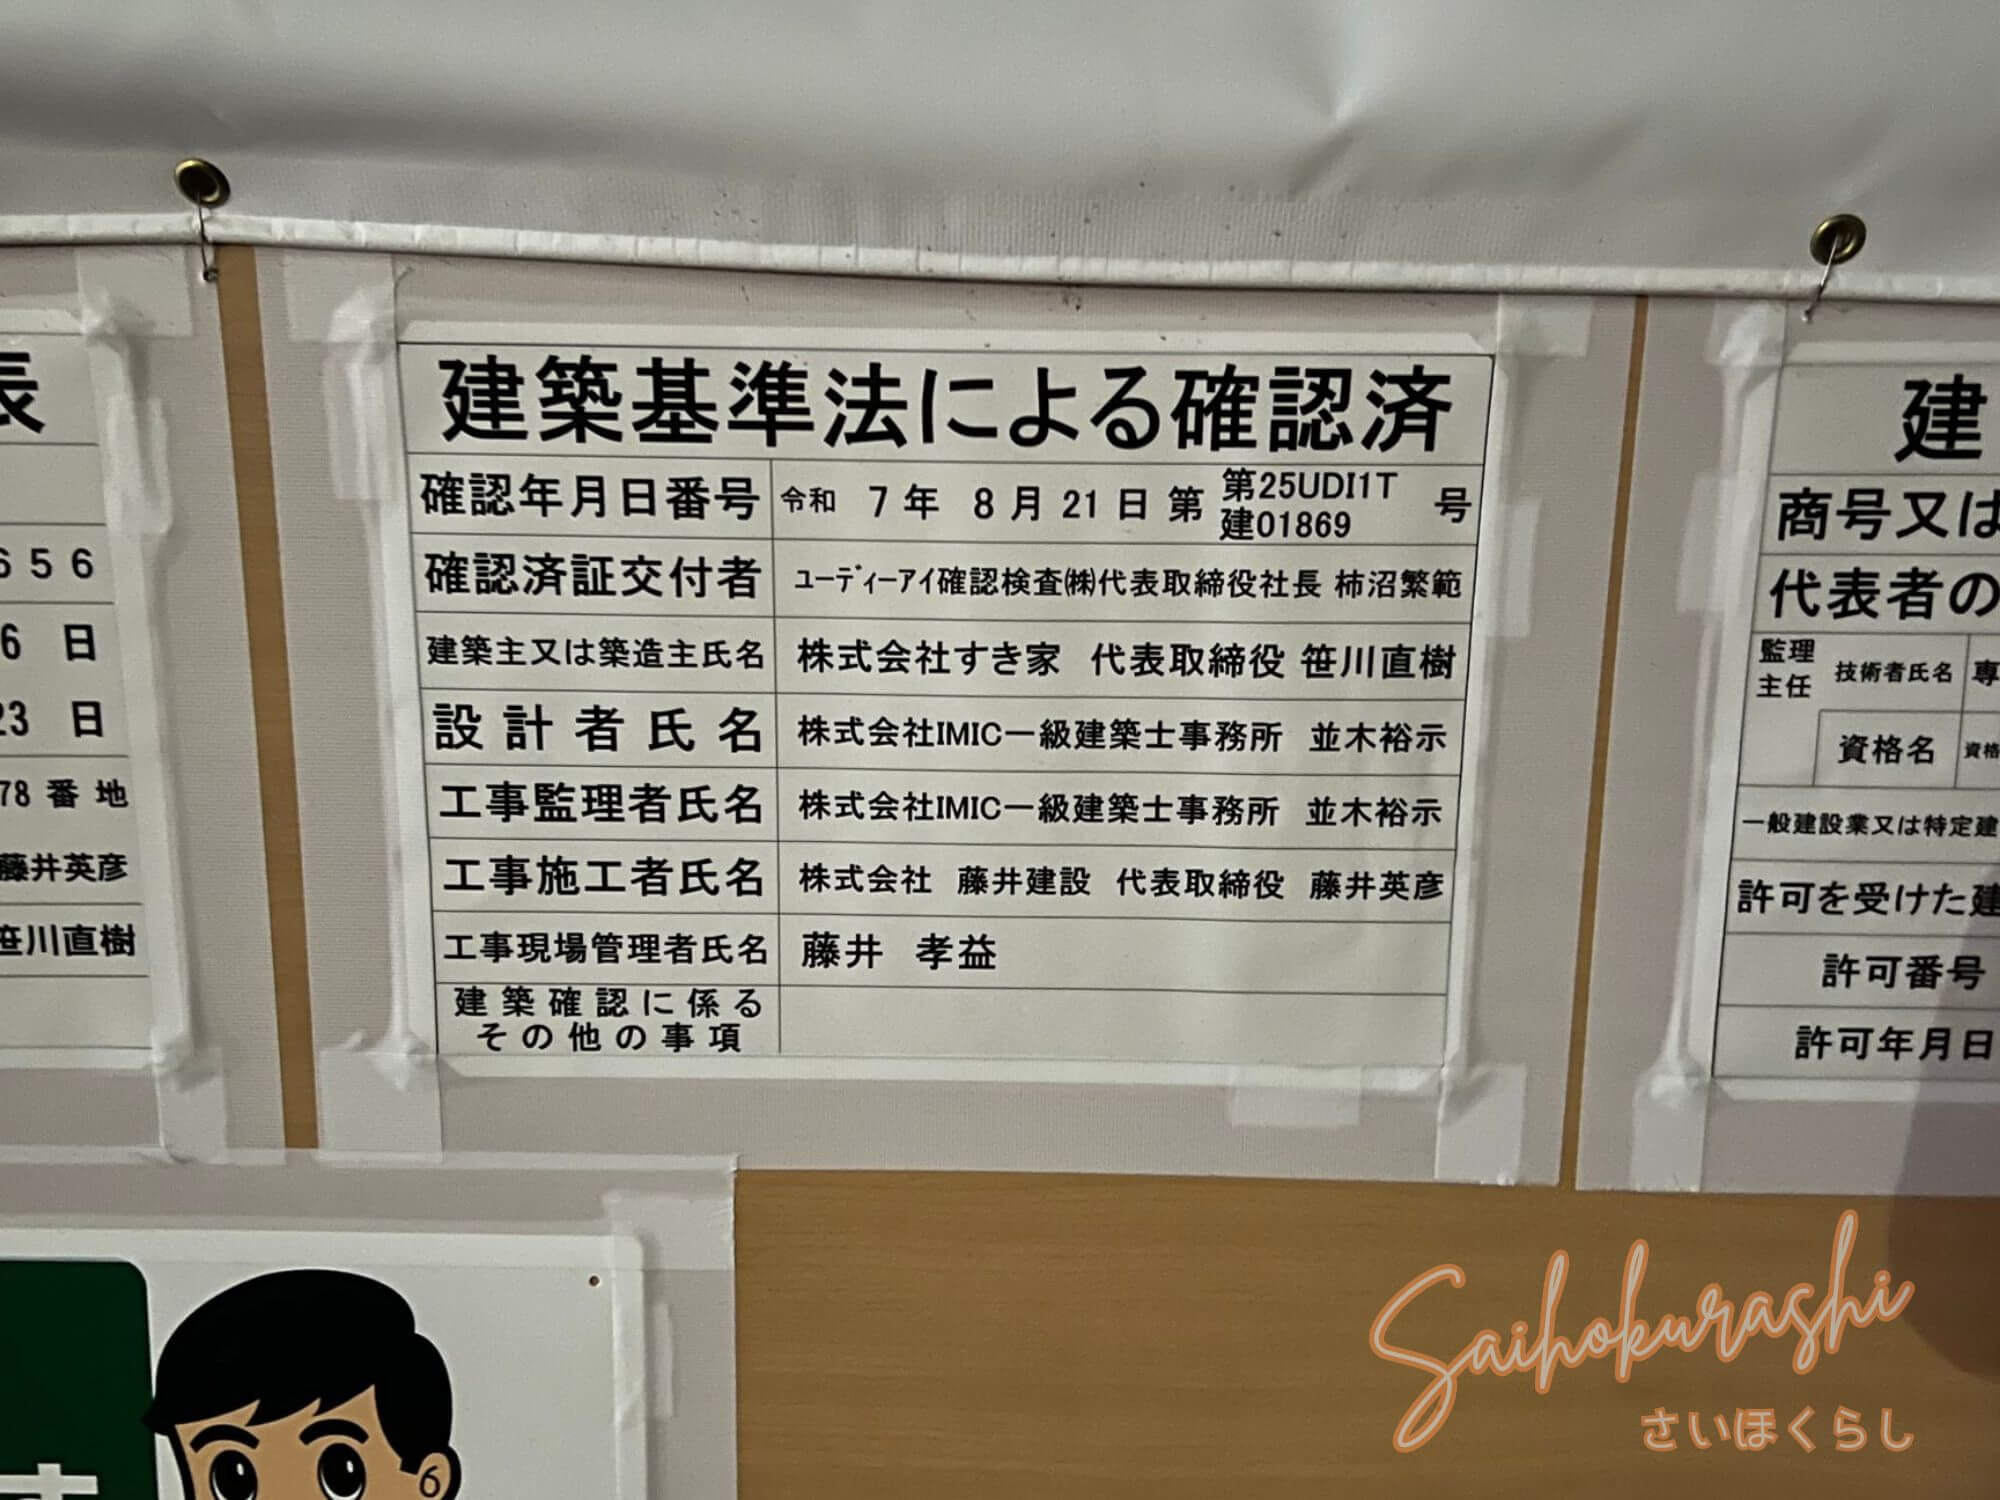 長
656
6 日
23 日
78 番 地
藤井英彦
笹川直樹
建築基準法による確認済
確認年月日番号 令和 7 年 8 月 21 日 第 第25UDI1T 建01869 号
確認済証交付者 ユーディーアイ確認検査㈱代表取締役社長 柿沼繁範
建築主又は築造主氏名 株式会社すき家 代表取締役 笹川直樹
設計者氏名 株式会社IMIC一級建築士事務所 並木裕示
工事監理者氏名 株式会社IMIC一級建築士事務所 並木裕示
工事施工者氏名 株式会社 藤井建設 代表取締役 藤井英彦
工事現場管理者氏名 藤井 孝益
建築確認に係る
その他の事項
建
商号又は
代表者の
監理 主任 技術者氏名 専
資格名 資格
一般建設業又は特定建
許可を受けた建
許可番号
許可年月日
す
Saihokurashi
さいほくらし